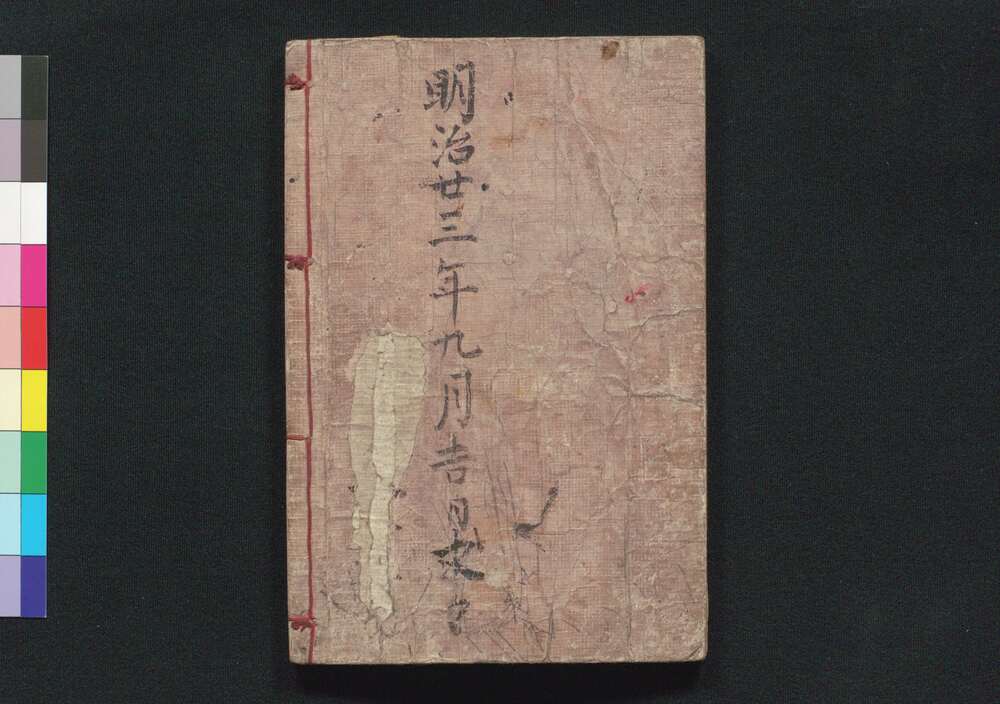 明治廿三年九月吉日